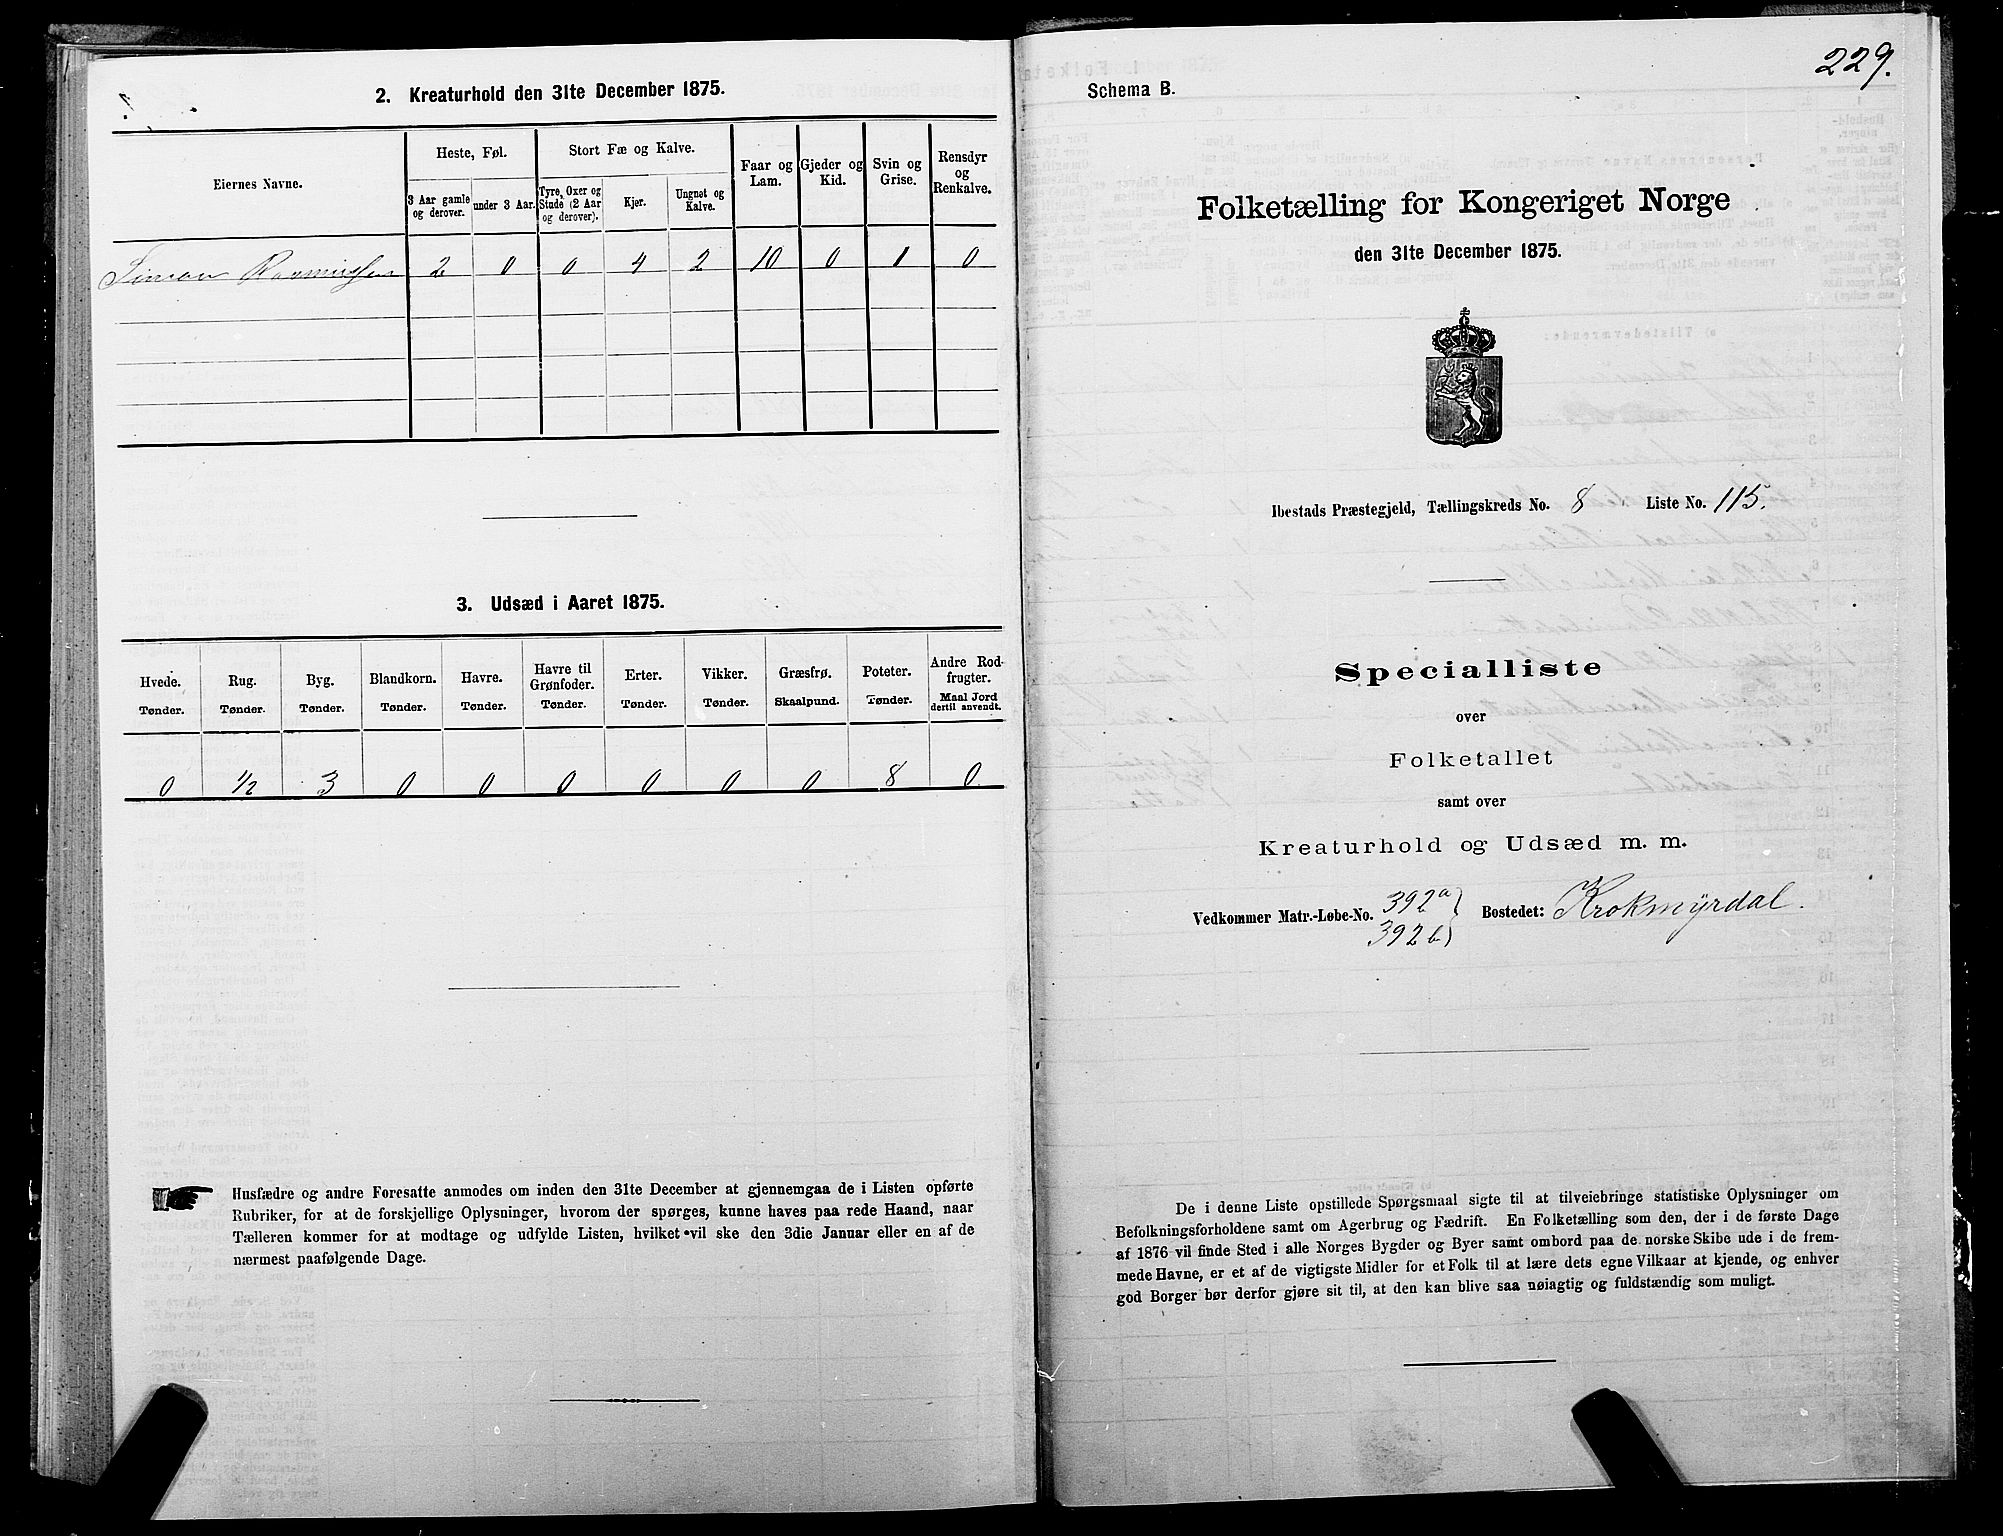 2. Kreaturhold den 31te December 1875.
Eiernes Navne.
Heste, Føl.
Stort Fæ og Kalve.
Faar og Lam.
Gjeder og Kid.
Svin og Grise.
Rensdyr og Renkalve.
3 Aar gamle og derover.
under 3 Aar.
Tyre, Oxer og Stude (2 Aar og derover).
Kjør.
Ungnøt og Kalve.
Simon Rasmussen 2 0 0 4 2 10 0 1 0
3. Udsæd i Aaret 1875.
Hvede. Rug. Byg. Blandkorn. Havre. Havre til Grønfoder. Erter. Vikker. Græsfrø. Poteter. Andre Rodfrugter.
Tønder. Tønder. Tønder. Tønder. Tønder. Tønder. Tønder. Tønder. Skaalpund. Tønder. Maal Jord dertil anvendt.
0 1/2 3 0 0 0 0 0 0 8 0
Husfædre og andre Foresatte anmodes om inden den 31te December at gjennemgaa de i Listen opførte
Rubriker, for at de forskjellige Oplysninger, hvorom der spørges, kunne haves paa rede Haand, naar
Tælleren kommer for at modtage og udfylde Listen, hvilket vil ske den 3die Januar eller en af de
nærmest paafølgende Dage.
229.
Schema B.
Folketælling for Kongeriget Norge
den 31te December 1875.
Ibestads Præstegjeld, Tællingskreds No. 8 Liste No. 115.
Specialliste
over
Folketallet
samt over
Kreaturhold og Udsæd m. m.
Vedkommer Matr.-Løbe-No. 392a } Bostedet: Krokmyrdal.
392b
De i denne Liste opstillede Spørgsmaal sigte til at tilveiebringe statistiske Oplysninger om
Befolkningsforholdene samt om Agerbrug og Fædrift. En Folketælling som den, der i de første Dage
af 1876 vil finde Sted i alle Norges Bygder og Byer samt ombord paa de norske Skibe ude i de frem-
mede Havne, er et af de vigtigste Midler for et Folk til at lære dets egne Vilkaar at kjende, og enhver
god Borger bør derfor gjøre sit til, at den kan blive saa nøiagtig og fuldstændig som muligt.